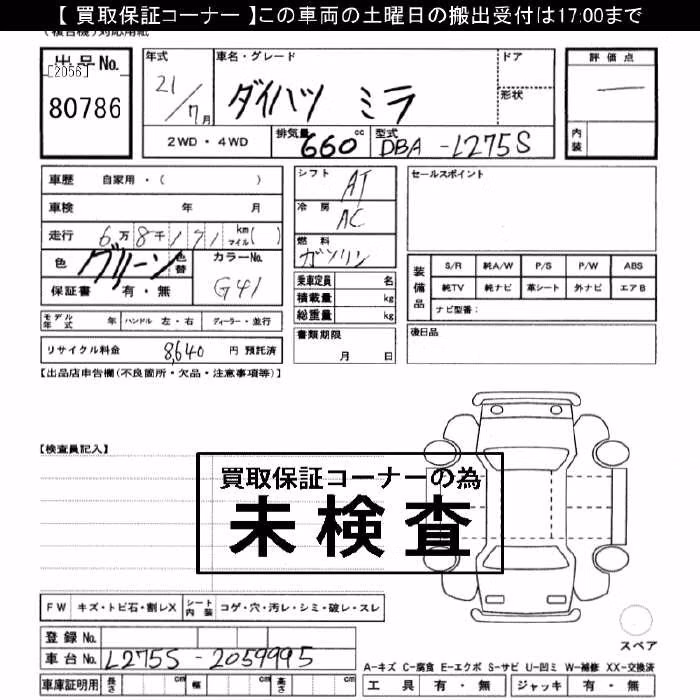 【 買取保証コーナー 】この車両の土曜日の搬出受付は17:00まで
(複合機)対応用紙
出品No.
[2056]
80786
年式
21/7月
車名・グレード
ダイハツ ミラ
ドア
形状
評価点
―
内装
2WD・4WD
排気量 660 cc
型式 DBA-L275S
車歴 自家用・( )
車検 年 月
走行 6万8千171 km マイル( )
色 グリーン 色替
カラーNo. G41
保証書 有・無
モデル年式 年 ハンドル 左・右 ディーラー・並行
リサイクル料金 8,640 円 預託済
シフト AT
冷房 AC
燃料 ガソリン
乗車定員 名
積載量 kg
総重量 kg
書類期限
月 日
セールスポイント
装備品
S/R 純A/W P/S P/W ABS
純TV 純ナビ 革シート 外ナビ エアB
ナビ型番:
後日品
【出品店申告欄(不良箇所・欠品・注意事項等)】
【検査員記入】
買取保証コーナーの為
未検査
FW キズ・トビ石・割レX シート内装 コゲ・穴・汚レ・シミ・破レ・スレ
登録No.
車台No. L275S-2059995
車庫証明用 長さ cm 幅 cm 高さ cm
スペア
A-キズ C-腐食 E-エクボ S-サビ U-凹ミ W-補修 XX-交換済
工具 有・無 ジャッキ 有・無